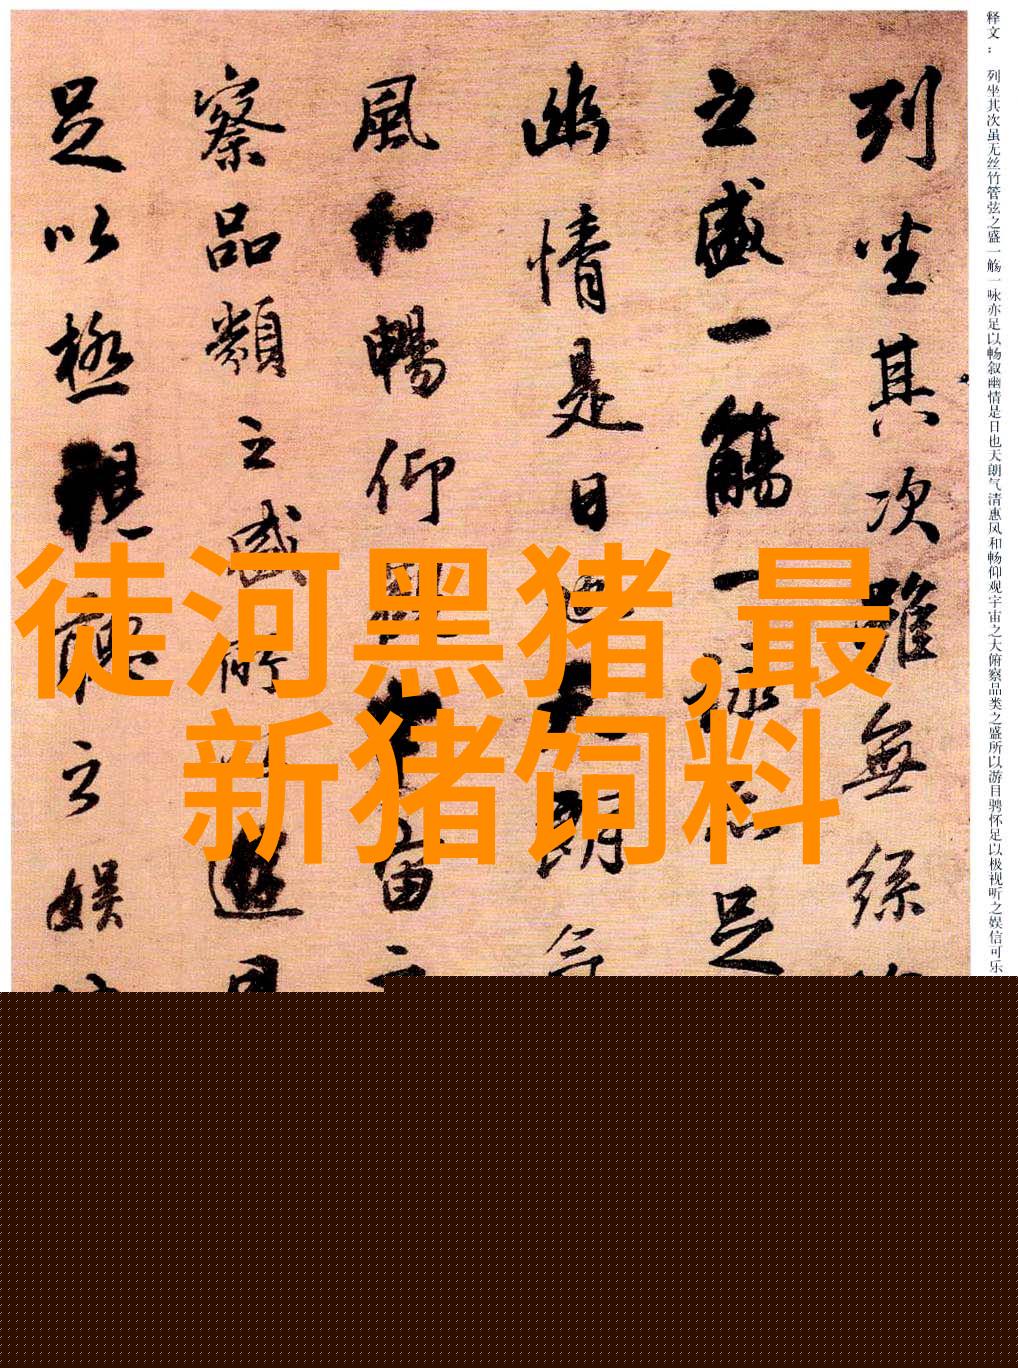 释文： 列坐其次虽无丝竹管弦之盛一觞一咏亦足以畅叙幽情是日也天朗气清惠风和畅仰观宇宙之大俯察品类之盛所以游目骋怀足以极视听之娱信可乐
列坐其次雖無絲
之盛一觴一詠亦足
幽情是日也天朗
風和暢仰觀宇宙之
察品類之盛所以遊目
足以極視聽之娛
徒河黑猪,最
新猪饲料